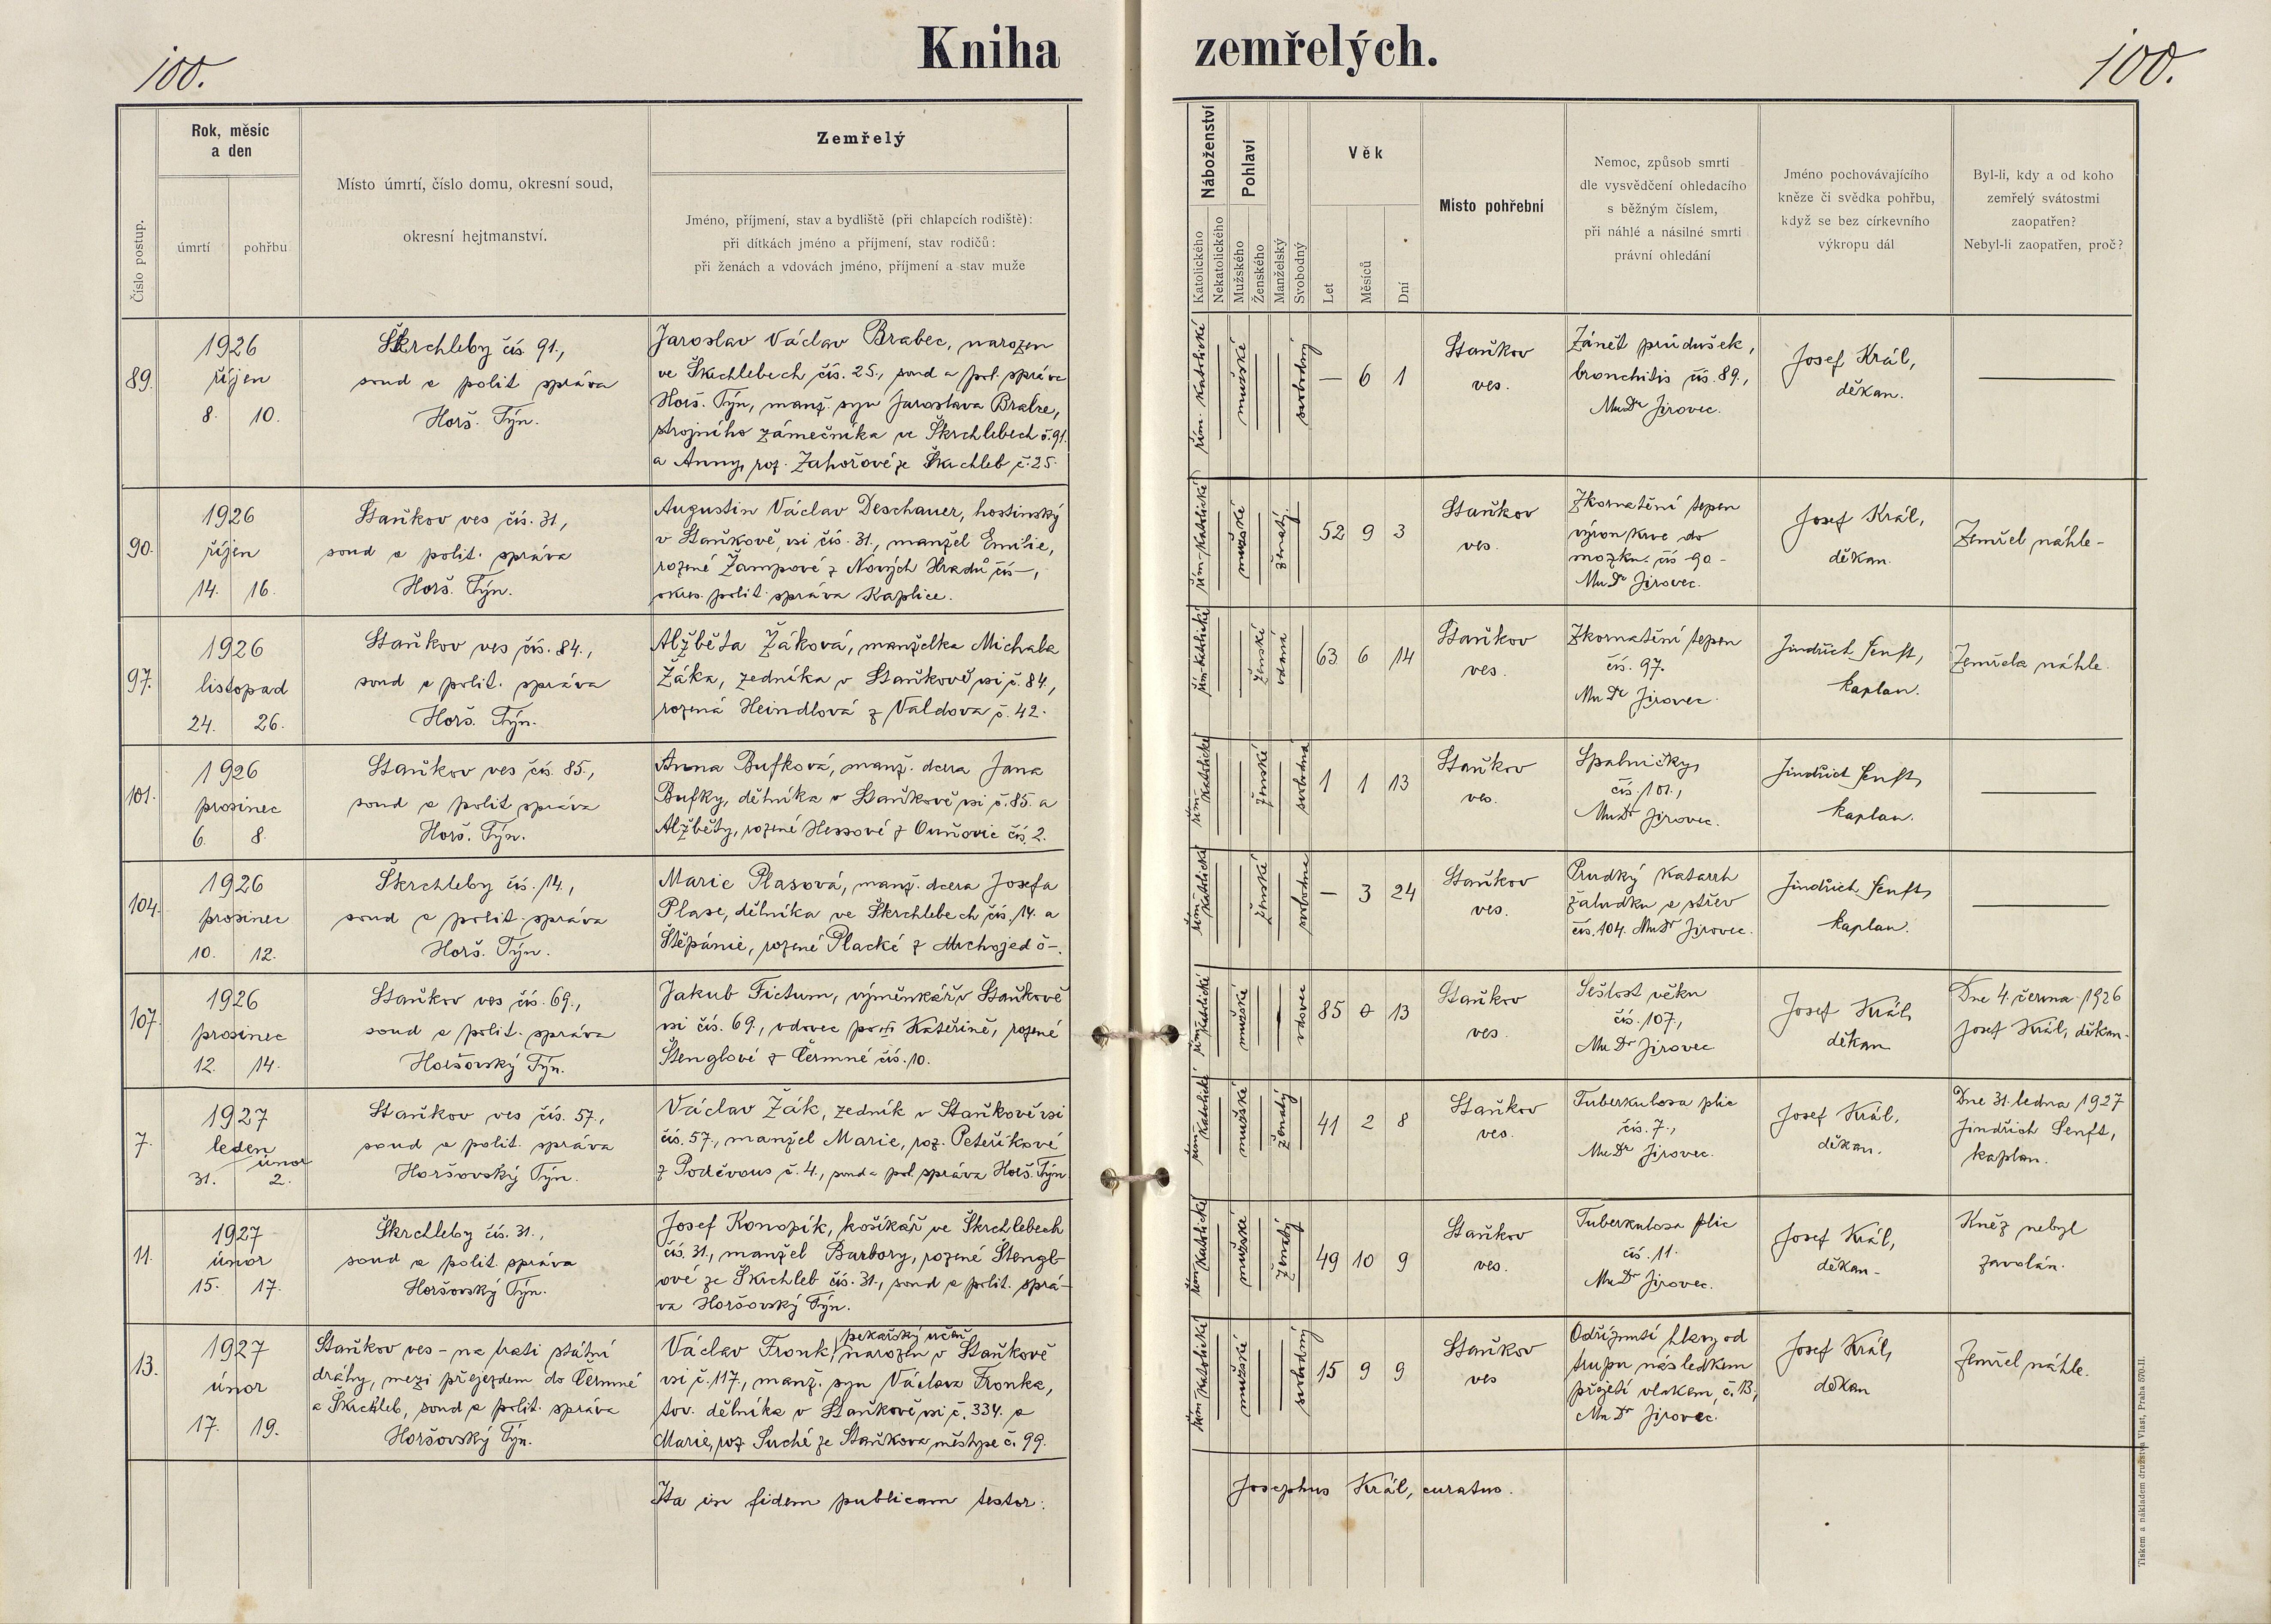 100.
Kniha zemřelých.
100.
Číslo postup.
Rok, měsíc
a den
úmrtí
pohřbu
Místo úmrtí, číslo domu, okresní soud,
okresní hejtmanství.
Zemřelý
Jméno, příjmení, stav a bydliště (při chlapcích rodiště):
při dítkách jméno a příjmení, stav rodičů:
při ženách a vdovách jméno, příjmení a stav muže
Náboženství
Katolického
Nekatolického
Pohlaví
Mužského
Ženského
Manželský
Svobodný
Věk
Let
Měsíců
Dní
Místo pohřební
Nemoc, způsob smrti
dle vysvědčení ohledacího
s běžným číslem,
při náhlé a násilné smrti
právní ohledání
Jméno pochovávajícího
kněze či svědka pohřbu,
když se bez církevního
výkropu dál
Byl-li, kdy a od koho
zemřelý svátostmi
zaopatřen?
Nebyl-li zaopatřen, proč?
89.
1926
říjen
8. 10.
Škrchleby čís. 91.,
soud a polit správa
Horš. Týn.
Jaroslav Václav Brabec, narozen
ve Škrchlebech čís. 25., soud a pol. správa
Horš. Týn, manž. syn Jaroslava Brabce,
strojního zámečníka ve Škrchlebech č. 91.
a Anny, roz. Zahořové ze Škrchleb č. 25.
řím. katolické
mužské
svobodný
— 6 1
Staňkov
ves.
Zánět průdušek,
bronchitis čís. 89.,
MuDr Jirovec.
Josef Král,
děkan.
90.
1926
říjen
14. 16.
Staňkov ves čís. 31,
soud a polit. správa
Horš. Týn.
Augustin Václav Deschauer, hostinský
v Staňkově, vsi čís. 31., manžel Emilie,
rozené Žampové z Nových Hradů čís —,
okres. polit. správa Kaplice.
řím-katolické
mužské
ženatý
52 9 3
Staňkov
ves.
Zkornatění tepen
výron krve do
mozku. čís 90 -
MuDr Jirovec.
Josef Král,
děkan.
Zemřel náhle -
97.
1926
listopad
24. 26.
Staňkov ves čís. 84.,
soud a polit. správa
Horš. Týn.
Alžběta Žáková, manželka Michala
Žáka, zedníka v Staňkově vsi č. 84.,
rozená Heindlová z Valdova č. 42.
řím-katolické
ženské
vdaná
63 6 14
Staňkov
ves.
Zkornatění tepen
čís. 97.
MuDr Jirovec.
Jindřich Senft,
kaplan.
Zemřela náhle.
101.
1926
prosinec
6. 8.
Staňkov ves čís. 85.,
soud a polit správa
Horš. Týn.
Anna Bufková, manž. dcera Jana
Bufky, dělníka v Staňkově vsi č. 85. a
Alžběty, rozené Hessové z Ouňovic čís. 2.
řím-katolické
ženské
svobodná
1 1 13
Staňkov
ves.
Spalničky,
čís. 101.,
MuDr Jirovec.
Jindřich Senft,
kaplan.
104.
1926
prosinec
10. 12.
Škrchleby čís. 14.,
soud a polit. správa
Horš. Týn.
Marie Plasová, manž. dcera Josefa
Plase, dělníka ve Škrchlebech čís. 14. a
Štěpánie, rozené Placké z Mrchojed č -.
řím-katolické
ženské
svobodná
— 3 24
Staňkov
ves.
Prudký katarrh
žaludku a střev
čís. 104. MuDr Jirovec.
Jindřich Senft,
kaplan.
107.
1926
prosinec
12. 14.
Staňkov ves čís. 69.,
soud a polit. správa
Horšovský Týn.
Jakub Fictum, výměnkář v Staňkově
vsi čís. 69., vdovec po Kateřině, rozené
Štenglové z Čermné čís. 10.
řím-katolické
mužské
vdovec
85 0 13
Staňkov
ves.
Sešlost věku
čís. 107.,
MuDr Jirovec
Josef Král,
děkan
Dne 4. června 1926
Josef Král, děkan.
7.
1927
leden
únor
31. 2.
Staňkov ves čís. 57.,
soud a polit. správa
Horšovský Týn.
Václav Žák, zedník v Staňkově vsi
čís. 57., manžel Marie, roz. Peteříkové
z Poděvous č. 4., soud a pol. správa Horš. Týn
řím-katolické
mužské
ženatý
41 2 8
Staňkov
ves.
Tuberkulosa plic
čís. 7.,
MuDr Jirovec.
Josef Král,
děkan.
Dne 31. ledna 1927
Jindřich Senft,
kaplan.
11.
1927
únor
15. 17.
Škrchleby čís. 31.,
soud a polit správa
Horšovský Týn.
Josef Konopík, košíkář ve Škrchlebech
čís. 31., manžel Barbory, rozené Štengl-
ové ze Škrchleb čís. 31., soud a polit. sprá-
va Horšovský Týn.
řím-katolické
mužské
ženatý
49 10 9
Staňkov
ves.
Tuberkulosa plic
čís. 11.
MuDr Jirovec.
Josef Král,
děkan -
Kněz nebyl
zavolán.
13.
1927
únor
17. 19.
Staňkov ves - na trati státní
dráhy, mezi přejezdem do Čermné
a Škrchleb, soud a polit. správa
Horšovský Týn.
pekařský učeň
Václav Fronk, narozen v Staňkově
vsi č. 117., manž. syn Václava Fronka,
tov. dělníka v Staňkově vsi č. 334. a
Marie, roz Suché ze Staňkova městyse č. 99.
řím-katolické
mužské
svobodný
15 9 9
Staňkov
ves
Odříznutí hlavy od
trupu následkem
přejetí vlakem, č. 13,
MuDr Jirovec.
Josef Král,
děkan
Zemřel náhle.
Ita in fidem publicam testor:
Josephus Král, curatus.
Tiskem a nákladem družstva Vlast, Praha 570-II.